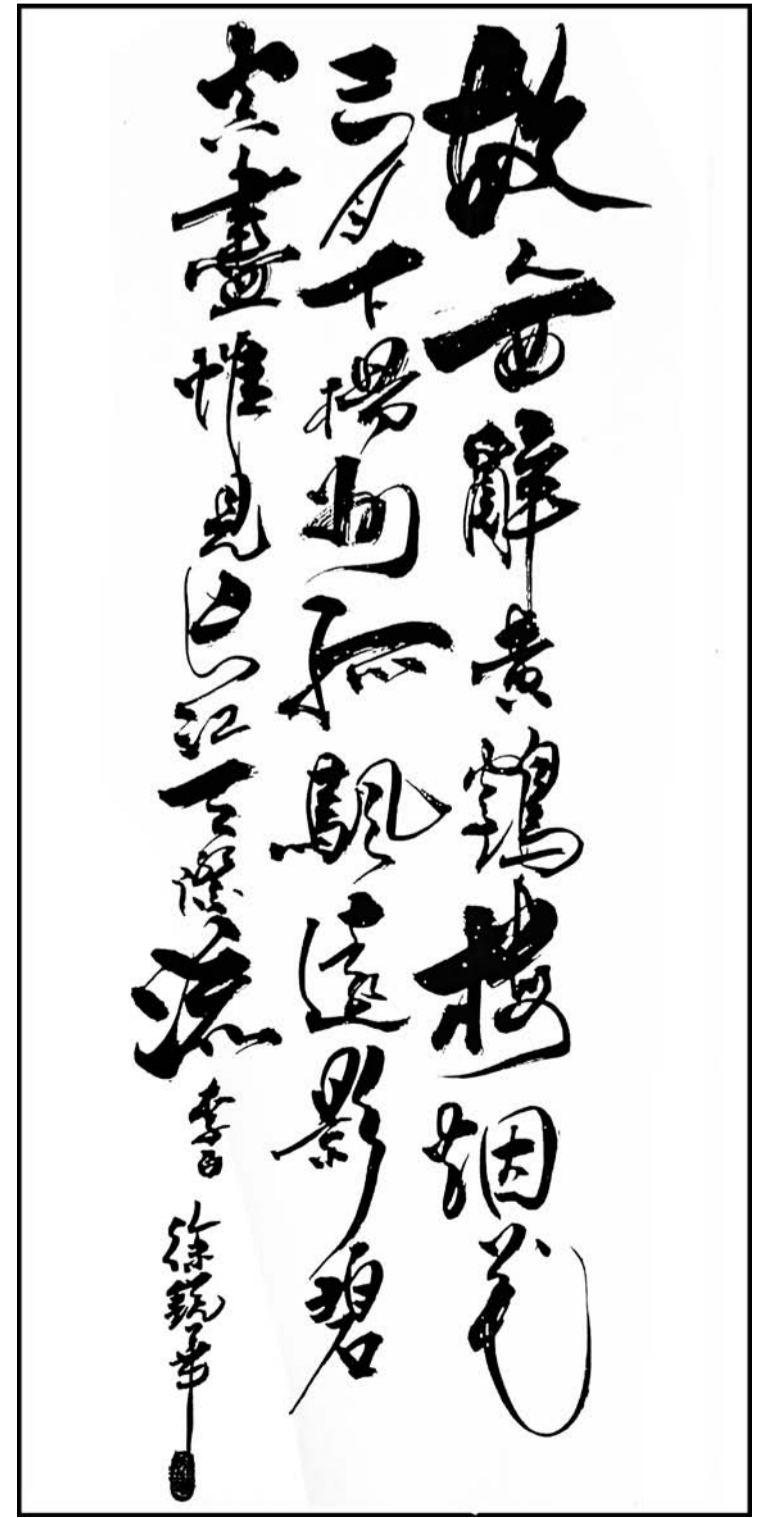 故人西辭黃鶴樓烟花
三月下揚州孤颿遠影碧
空盡惟見長江天際流 李白 徐銳